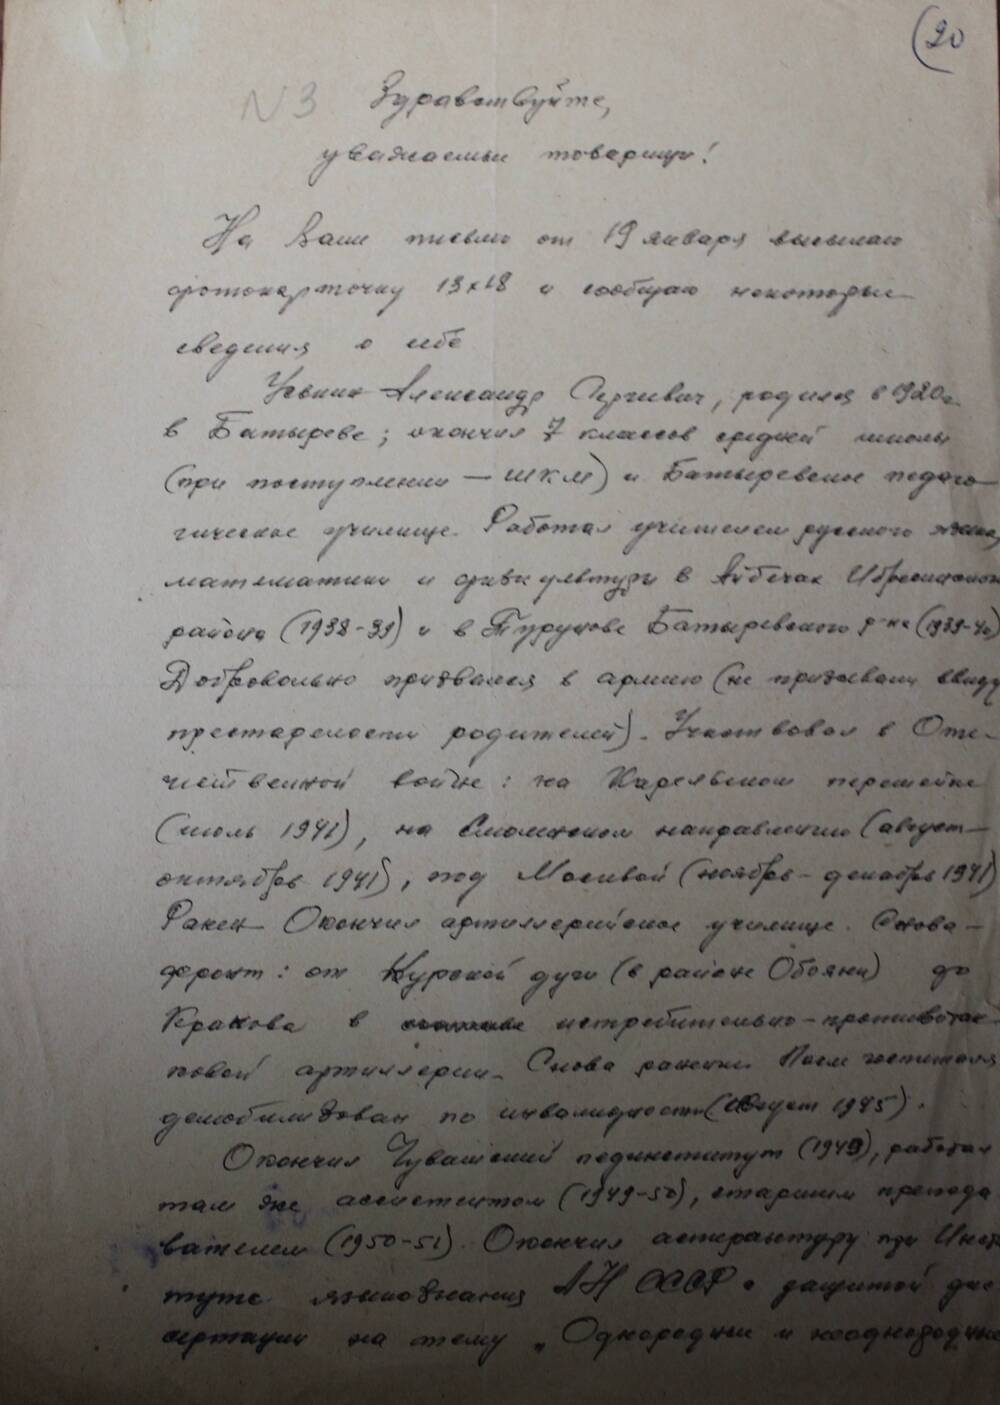 (20
N 3
Здравствуйте,
уважаемые товарищи!
На Ваше письмо от 19 января высылаю
фотокарточку 13х18 и сообщаю некоторые
сведения о себе
Александр Сергеевич, родился в 1920 г.
в Батыреве; окончил 7 классов средней школы
(при поступлении — ШКМ) и Батыревское педаго-
гическое училище. Работал учителем русского языка,
математики и физкультуры в Айбечах Ибресинского
района (1938-39) и в Турунове Батыревского р-на (1939-40)
Добровольно призвался в армию (не призывали ввиду
престарелости родителей). Участвовал в Оте-
чественной войне: на Карельском перешейке
(июль 1941), на Смоленском направлении (август—
октябрь 1941), под Москвой (ноябрь – декабрь 1941)
Ранен Окончил артиллерийское училище. Снова —
фронт: от Курской дуги (в районе Обояни) до
Кракова в составе истребительно-противотан-
ковой артиллерии. Снова ранен. После госпиталя
демобилизован по инвалидности (август 1945).
Окончил Чувашский пединститут (1949), работал
там же ассистентом (1949-50), старшим препода
вателем (1950-51). Окончил аспирантуру при Инсти
туте языкознания АН СССР с защитой дис
сертации на тему „Однородные и неоднородные